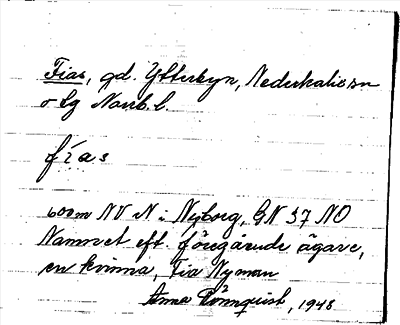 Fias, gd. Ytterbyn, Nederkalix sn
o tg Norrb. l.
fías
600 m NV N i Nyborg, GN 37 NO
Namnet eft. föregående ägare,
en kvinna, Fia Nyman
Anna Rönnquist, 1948